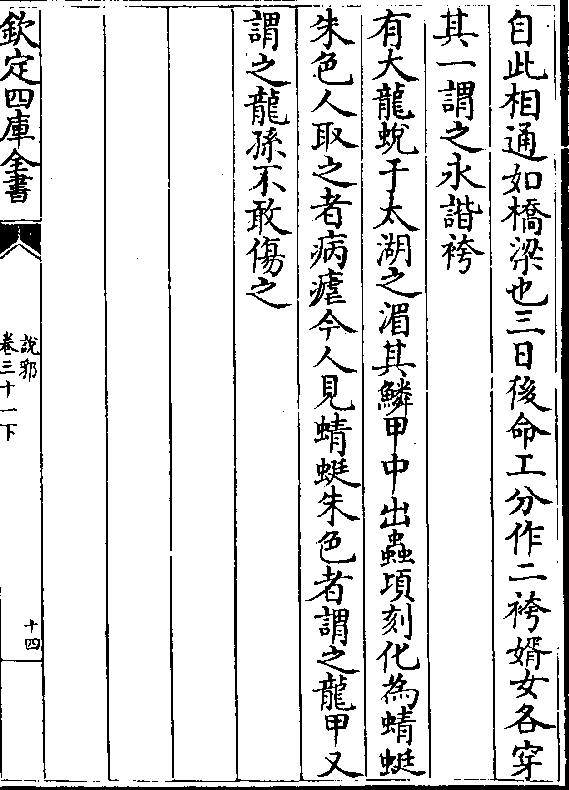 自此相通如橋梁也三日後命工分作二袴婿女各穿
其一謂之永諧袴
有大龍蛻于太湖之湄其鱗甲中出蟲頃刻化為蜻蜓
朱色人取之者病瘧今人見蜻蜓朱色者謂之龍甲又
謂之龍孫不敢傷之
欽定四庫全書
說郛
卷三十一下
十四